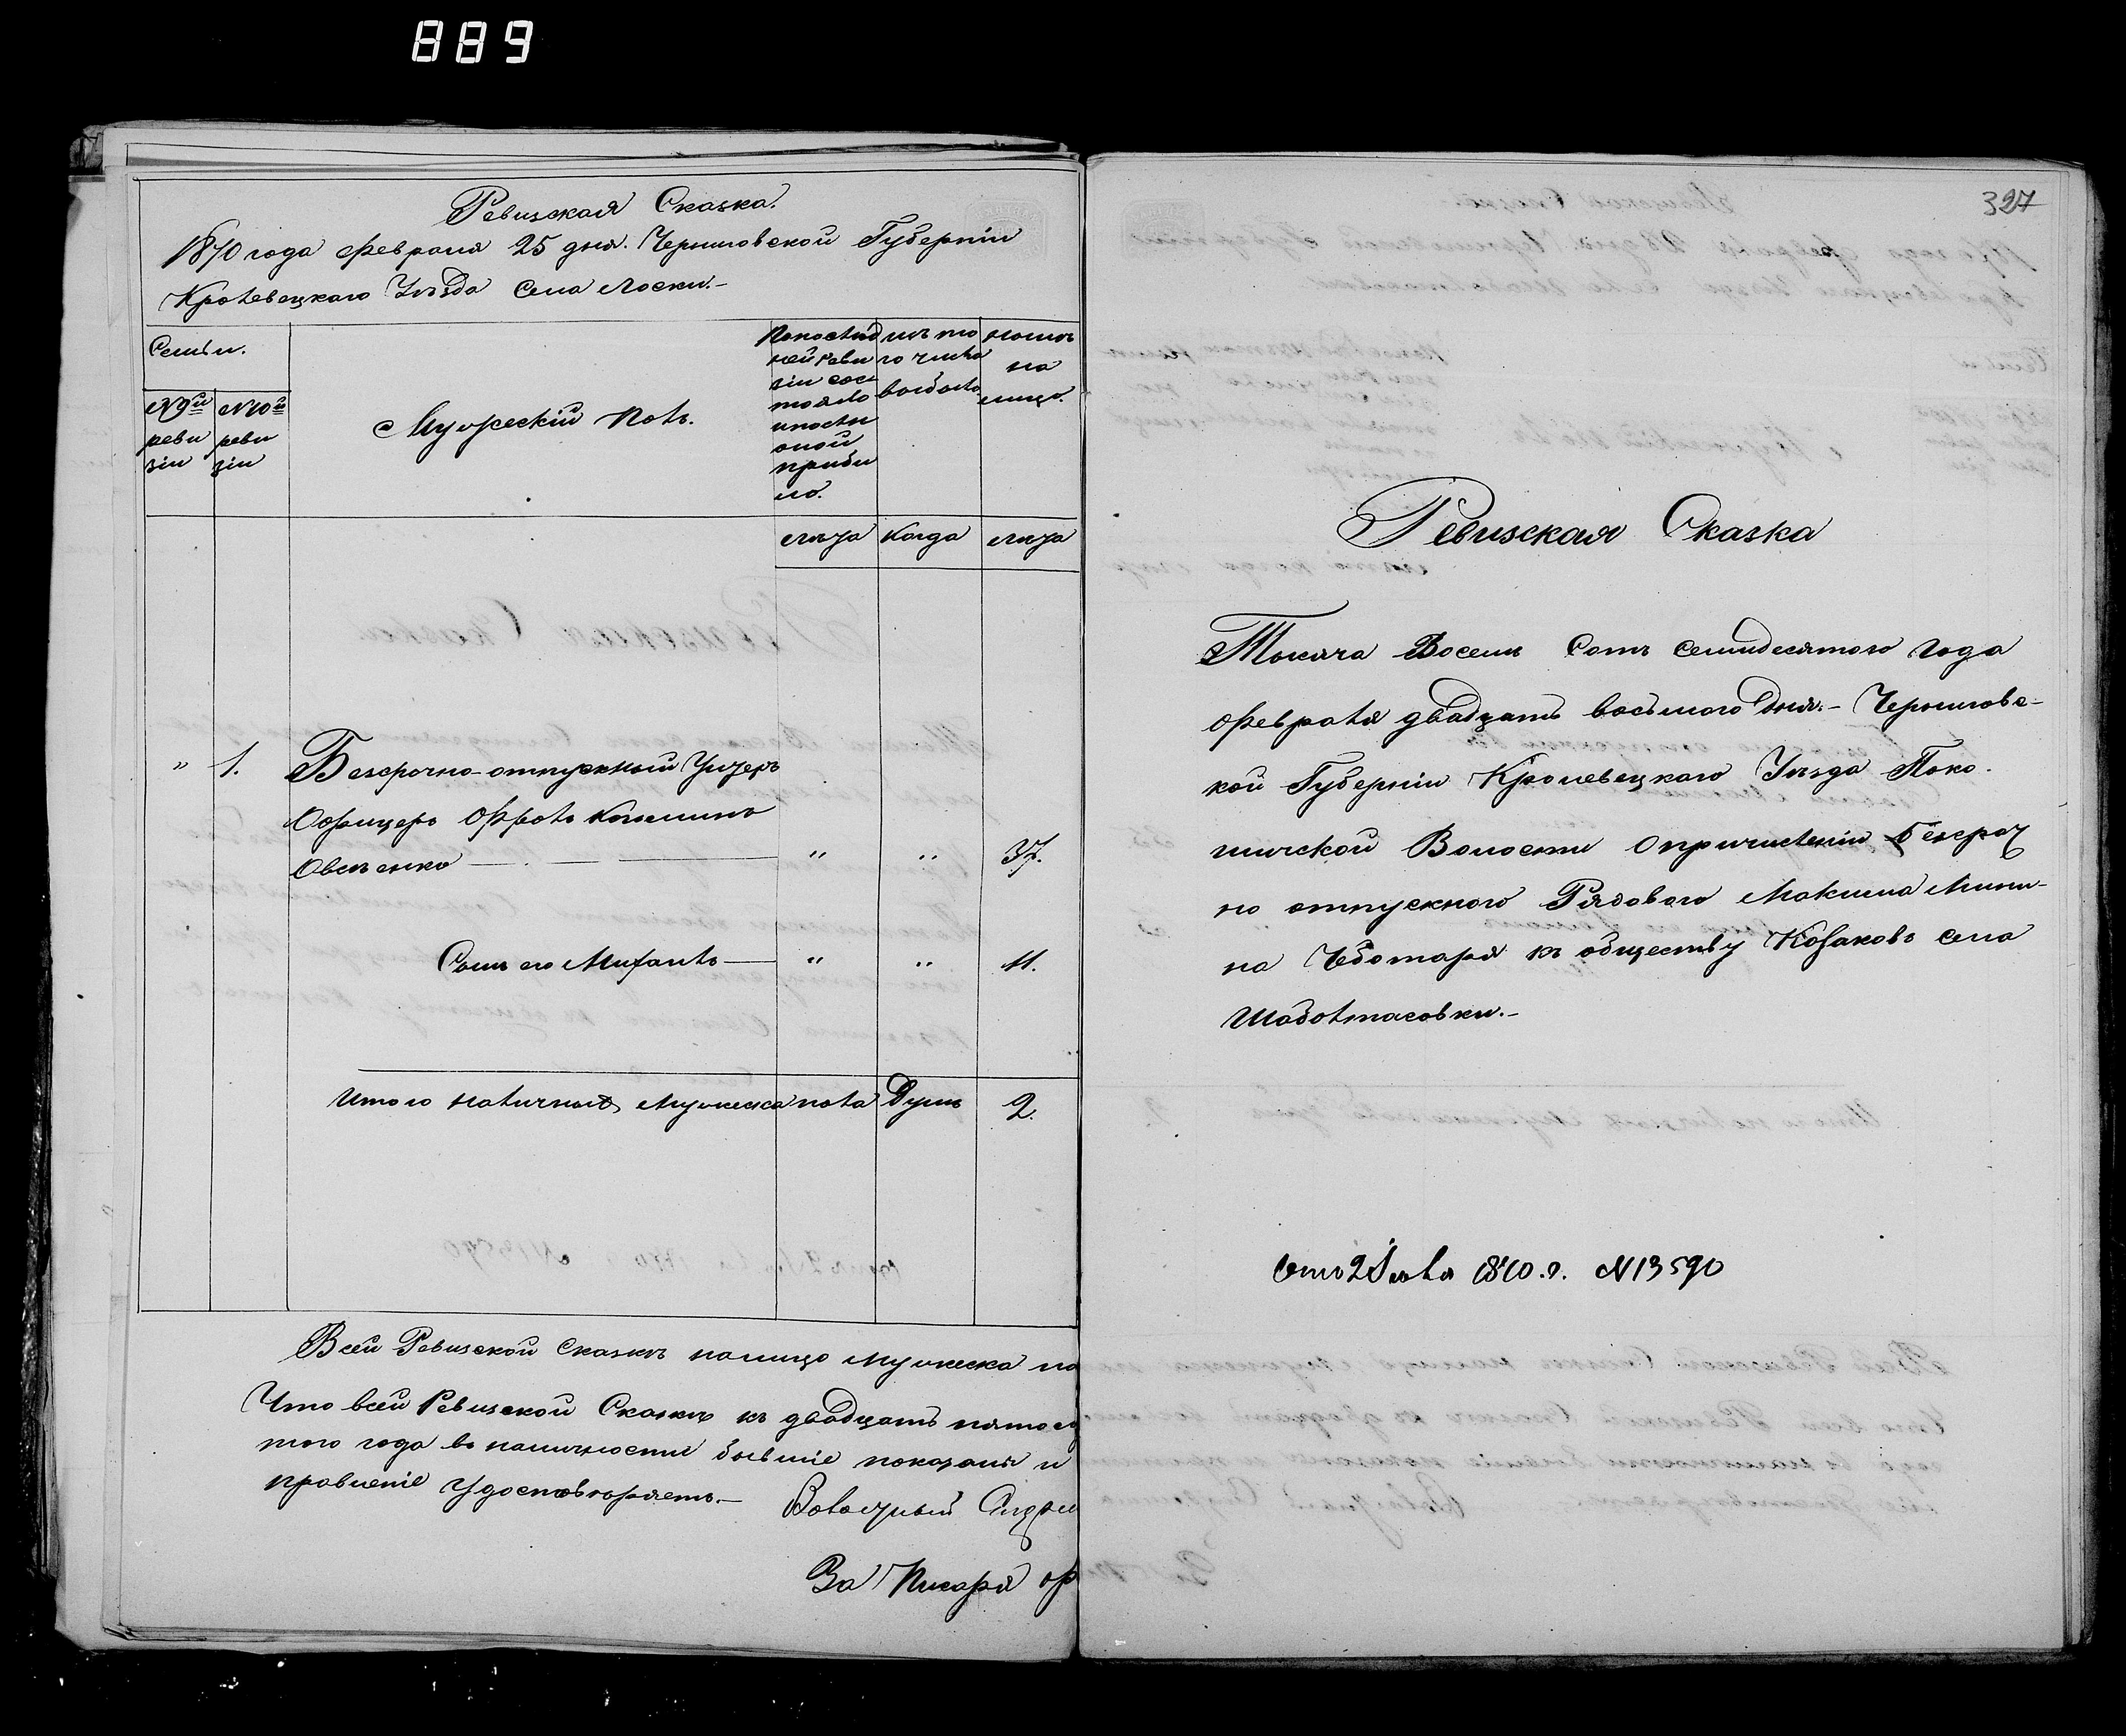 889
Ревизская Сказка.
1870 года февраля 25 дня. Черниговской Губерніи
Кролевецкаго Уѣзда Села Лоски.-
Семьи.
№ 9й ревизіи
№ 10й ревизіи
Мужескій полъ.
По последней ревизіи состояло и после оной прибыло.
изъ того числа выбыло.
нынѣ на лицо.
лѣта когда лѣта
" 1. Безсрочно-отпускный Унтеръ
Офицеръ Фролъ
Овсѣенко " " 37.
Сынъ его Михаилъ " " 11.
Итого наличныхъ мужеска пола душъ 2.
Всей Ревизской Сказкѣ налицо мужеска по
Что всей Ревизской Сказкѣ къ двадцать пятого
того года въ наличности бывшіе показаны и
правленіе удостовѣряетъ.- Волостный Андре
За Писаря Ф
327
Ревизская Сказка
Тысяча Восемь Сотъ Семидесятого года
Февраля двадцать восьмого дня.- Черниговс-
кой Губерніи Кролевецкаго Уѣзда Поно-
рницкой Волости о причисленіи безсроч
но отпускного Рядового Максима Мини-
на Чеботаря къ обществу Козаковъ села
Шаболтасовки.-
отъ 2 Іюля 1870.г. N 13590